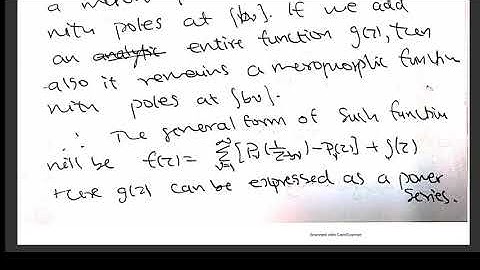 with poles at {bν}. If we add
an analytic entire function g(z), then
also it remains a meromorphic function
with poles at {bν}.
∴ The general form of such function
will be f(z) = ∑_{ν=1}^{∞} [Pν(1/(z-bν)) - pν(z)] + g(z)
here g(z) can be expressed as a power
series.
Scanned with CamScanner